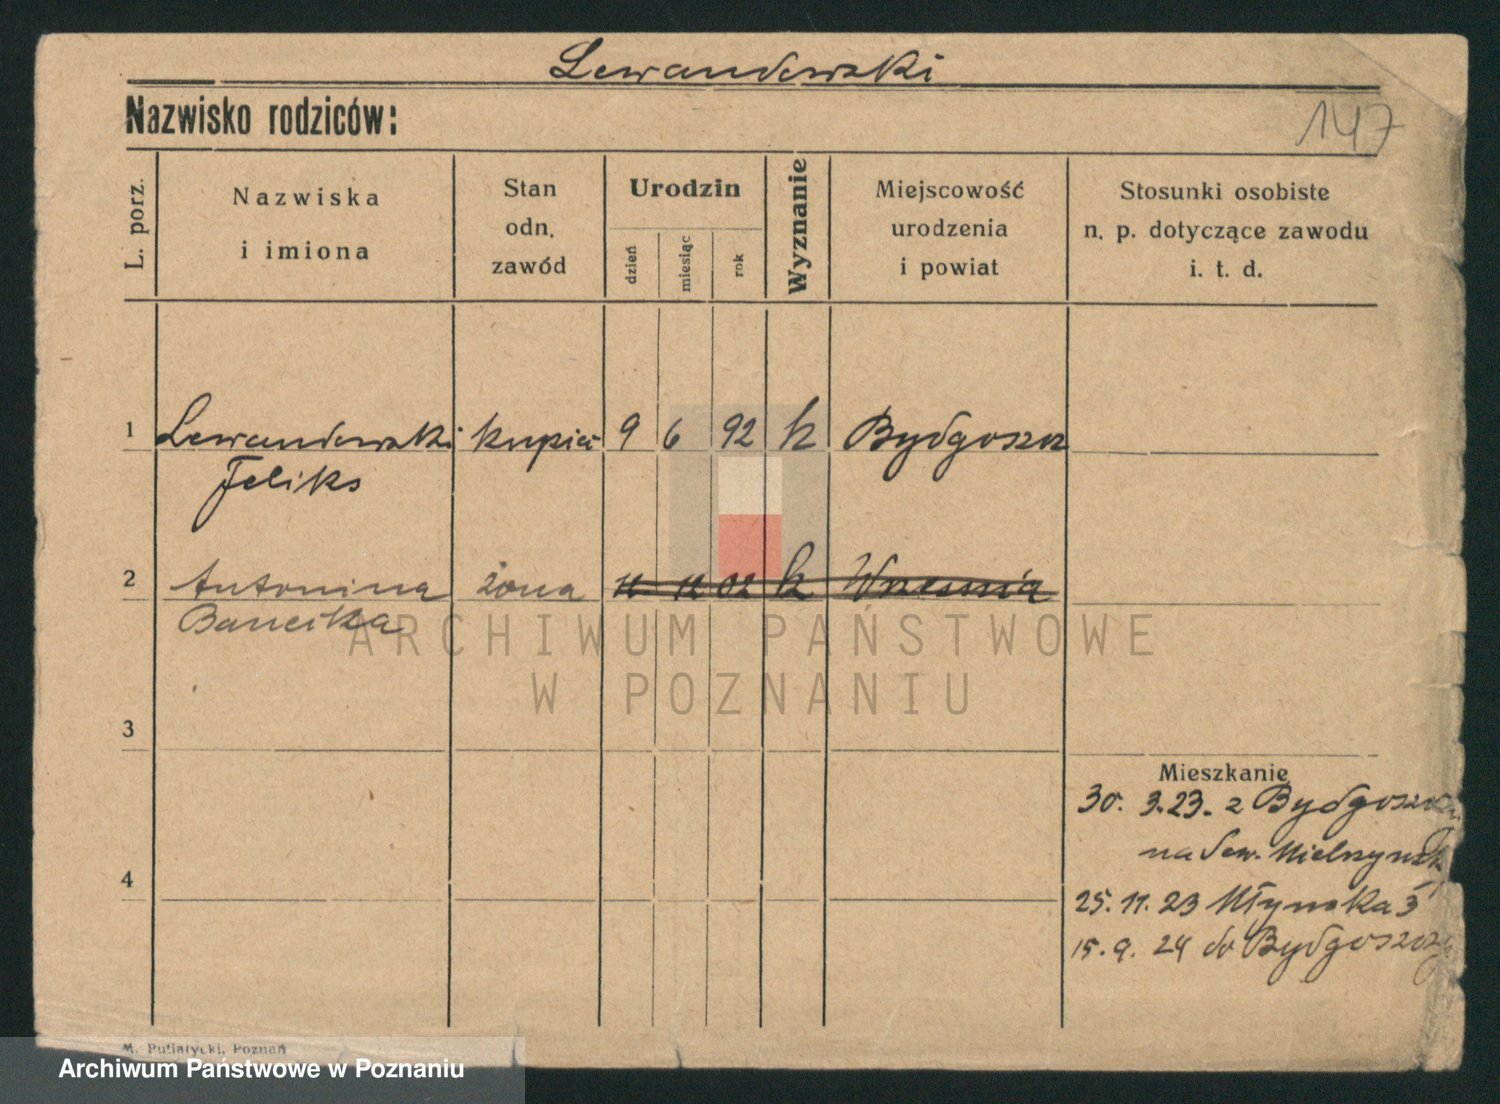 Lewandowski
Nazwisko rodziców:
147
L. porz.
Nazwiska
i imiona
Stan
odn.
zawód
Urodzin
dzień
miesiąc
rok
Wyznanie
Miejscowość
urodzenia
i powiat
Stosunki osobiste
n. p. dotyczące zawodu
i. t. d.
1 Lewandowski kupiec 9 6 92 k Bydgoszcz
Feliks
2 Antonina żona 12 02 k Września
ARCHIWUM PAŃSTWOWE
W POZNANIU
3
Mieszkanie
30. 3.23. z Bydgoszczy
na Sew. Mielżyńsk
4
25. 11. 23 Młyńska 3
15. 9. 24 do Bydgoszczy
M. Putiatycki, Poznań
Archiwum Państwowe w Poznaniu